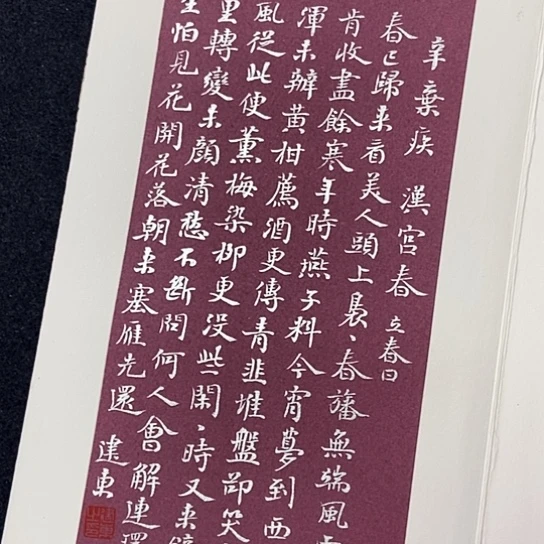 辛棄疾 漢宮春 立春日
春已歸來看美人頭上裊、春旛無端風雨
肯收盡餘寒年時燕子料今宵夢到西
渾未辦黃柑薦酒更傳青韭堆盤卻笑
風從此便薰梅染柳更沒些閑、時又來
里轉變朱顏清愁不斷問何人會解連環
生怕見花開花落朝來塞雁先還 建東